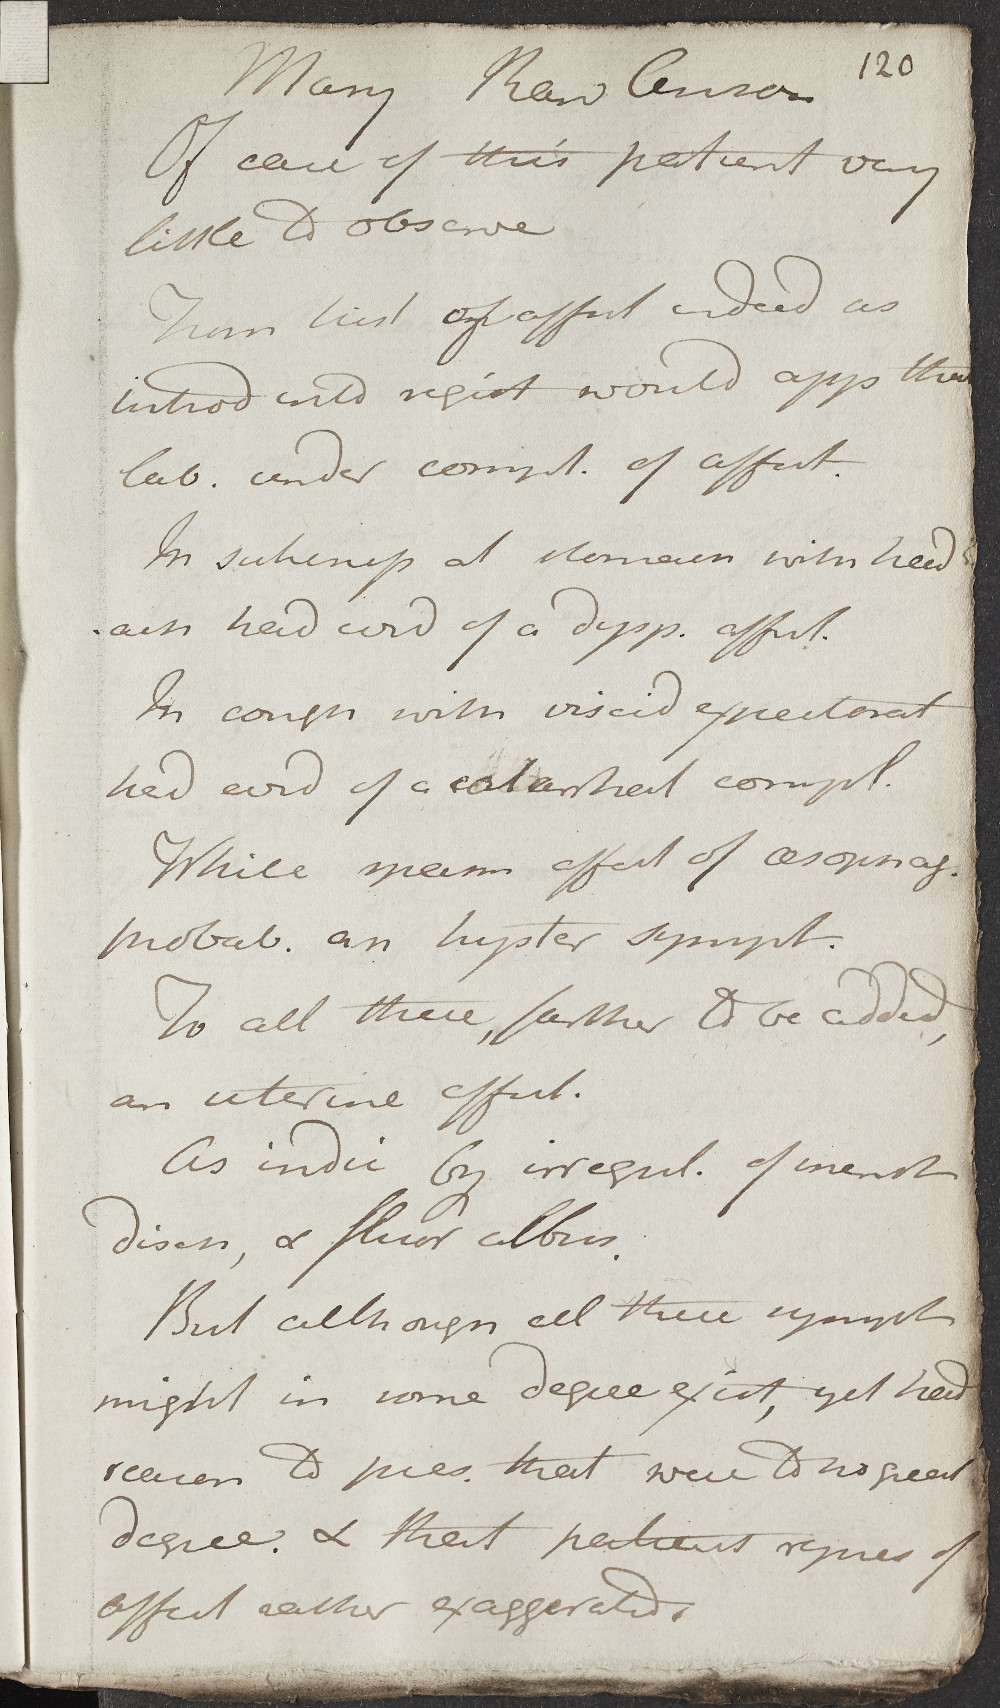 120
Mary Rawlinson
Of case of this patient very
little to observe
From hist of affect indeed as
introd into regist would appr that
lab. under compl. of affect.
In sickness at stomach with head
ach had evid of a dysp. affect.
In cough with viscid expectorat
had evid of a catarrhal compl.
While spasm affect of œsophag.
probab. an hyster sympt.
To all these, farther to be added,
an uterine affect.
As indic by irregul. of menst
disch, & fluor albus.
But although all these sympt
might in some degree exist, yet had
reason to pres. that were to no great
degree. & that patient repres of
affect rather exaggerated.